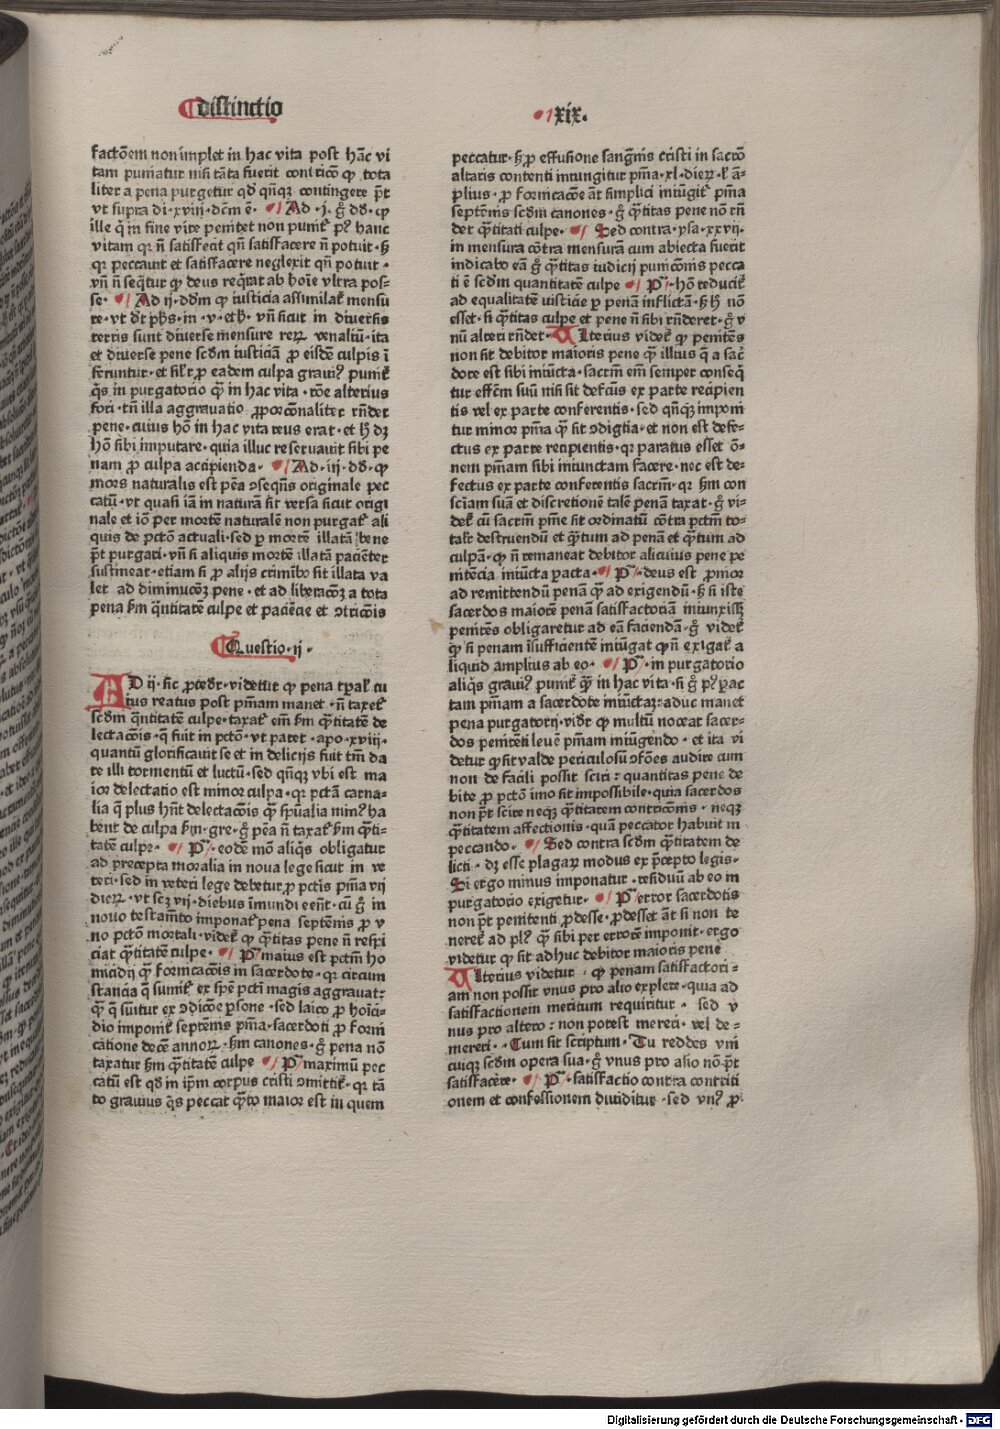 distinctio
xix.
factōem non implet in hac vita post hāc vi
tam puniatur nisi tāta fuerit contricō ꝙ tota
liter a pena purgetur qd̄ qn̄qꝫ contingere pt̄
vt supra di·xviij·dcm̄ ē· Ad·j·g̊ dd̄·ꝙ
ille q̄ in fine vite penitet non punit᷑ pꝰ hanc
vitam qꝛ n̄ satisfecit qn̄ satisfacere n̄ potuit·sꝫ
qꝛ peccauit et satisfacere neglexit qn̄ potuit·
vn̄ n̄ seq̄tur ꝙ deus req̄rat ab hoīe vltra pos⸗
se· Ad ij·dd̄m ꝙ iusticia assimilat᷑ mensu
re·vt dt̄ ph̄s·in·v·eth̄·vn̄ sicut in diuersis
terris sunt diuerse mensure reꝝ venaliū·ita
et diuerse pene scd̄m iusticiā ꝓ eisdē culpis ī
feruntur·et sil̄r ꝓ eadem culpa grauiꝰ punit᷑
q̄s in purgatorio q̄ꝫ in hac vita·rōe alterius
fori·tn̄ illa aggrauatio ꝓporcōnaliter rn̄det
pene·cuius hō in hac vita reus erat·et hꝫ dꝫ
hō sibi imputare·quia illuc reseruauit sibi pe
nam ꝓ culpa accipienda· Ad·iij·dd̄·ꝙ
mors naturalis est pēa ↄseqn̄s originale pec
catū·vt quasi iā in naturā sit versa sicut origi
nale et iō per mortē naturalē non purgat᷑ ali
quis de pctō actuali·sed ꝑ mortē illatā bene
pt̄ purgari·vn̄ si aliquis mortē illatā paciēter
sustineat·etiam si ꝓ alijs crimībꝰ sit illata va
let ad diminucōꝫ pene·et ad liberacōꝫ a tota
pena sm̄ q̄ntitatē culpe et paciēcie et ↄtricōis
Questio·ij·
AD ij·sic ꝓcedr̄·videtur ꝙ pena tp̄al᷑ cu
ius reatus post pn̄iam manet·n̄ taxet᷑
scd̄m q̄ntitatē culpe·taxat᷑ em̄ sm̄ q̄titatē de
lectacōis·q̄ fuit in pctō·vt patet·apo·xviij·
quantū glorificauit se et in delicijs fuit tm̄ da
te illi tormentū et luctū·sed qn̄qꝫ vbi est ma
ior delectatio est minor culpa·qꝛ pctā carna⸗
lia q̄ plus hn̄t delectacōis q̄ꝫ sp̄ualia minꝰ ha
bent de culpa sm̄·gre·g̊ pēa n̄ taxat᷑ sm̄ q̄ti⸗
tatē culpe· P̄·eodē mō aliq̄s obligatur
ad precepta moralia in noua lege sicut in ve
teri·sed in veteri lege debetur ꝓ pctīs pn̄ia vij
dieꝝ·vt scꝫ vij·diebus īmundi eēnt·cū g̊ in
nouo testam̄to imponat᷑ pena septēnis ꝓ v
no pctō mortali·videt᷑ ꝙ q̄ntitas pene n̄ respi
ciat q̄ntitatē culpe· P̄ maius est pctm̄ ho
micidij q̄ꝫ fornicacōis in sacerdote·qꝛ circum
stancia q̄ sumit᷑ ex spē pcti magis aggrauat·
q̄ꝫ q̄ sūitur ex ↄdicōe ꝑsone·sed laico ꝓ hoīci⸗
dio imponit᷑ septēnis pn̄ia·sacerdoti ꝓ forni
catione decē annoꝝ·sm̄ canones·g̊ pena nō
taxatur sm̄ q̄titatē culpe P̄ maximū pec
catū est qd̄ in ip̄m corpus cristi ↄmittit᷑·qꝛ tā
to grauius q̄s peccat q̄nto maior est in quem
peccatur·sꝫ ꝓ effusione sangnīs cristi in sacrō
altaris contenti iniungitur pn̄ia·xl·dieꝝ·l᷑ ā⸗
plius·ꝓ fornicacōe āt simplici iniūgit᷑ pn̄ia
septēnis scd̄m canones·g̊ q̄ntitas pene nō rn̄
det q̄ntitati culpe· Sed contra·ysa·xxvij·
in mensura cōtra mensurā cum abiecta fuerit
iudicabo eā g̊ q̄ntitas iudicij punicōnis pecca
ti ē scd̄m quantitatē culpe P̄·hō reducit᷑
ad equalitatē iusticie ꝑ penam inflictā·sꝫ hꝫ nō
esset·si q̄ntitas culpe et pene n̄ sibi rn̄deret·g̊ v
nū alteri rn̄det· Alterius videt᷑ ꝙ penitēs
non sit debitor maioris pene q̄ꝫ illius q̄ a sac̄
dote est sibi iniūcta·sacrm̄ em̄ semper conseq̄
tur effm̄ suū nisi sit defcūs ex parte recipien
tis vel ex parte conferentis·sed qn̄qꝫ imponi
tur minor pn̄ia q̄ꝫ sit ↄdigtia·et non est defe⸗
ctus ex parte recipientis·qꝛ paratus esset ō⸗
nem pn̄iam sibi iniunctam facere·nec est de⸗
fectus ex parte conferentis sacrm̄·qꝛ sm̄ con
sciam suā et discretionē talē penā taxat·g̊ vi⸗
det᷑ cū sacrm̄ pn̄ie sit ordinatū cōtra pctm̄ to⸗
talr̄ destruendū et q̄ntum ad penā et q̄ntum ad
culpā·ꝙ n̄ remaneat debitor alicuius pene pe
nitēcia iniūcta ꝑacta· P̄·deus est ꝓnior
ad remittendū penā q̄ꝫ ad exigendū·sꝫ si iste
sacerdos maiorē penā satisfactoriā iniunxissꝫ
penitēs obligaretur ad eā faciendā·g̊ videt᷑
ꝙ si penam īsufficientē iniūgat ꝙ n̄ exigat᷑ a
liquid amplius ab eo· P̄·in purgatorio
aliq̄s grauiꝰ punit᷑ q̄ꝫ in hac vita·si g̊ pꝰ ꝑac
tam pn̄iam a sacerdote iniūctaꝫ·aduc manet
pena purgatorij·vidr̄ ꝙ multū noceat sacer⸗
dos penitēti leuē pn̄iam iniūgendo·et ita vi
detur ꝙ sit valde periculosū ↄfōes audire cum
non de facili possit sciri·quantitas pene de
bite ꝓ pctō imo sit impossibile·quia sacerdos
non pt̄ scire neqꝫ q̄ntitatem contricōnis·neqꝫ
q̄ntitatem affectionis·quā peccator habuit in
peccando· Sed contra scd̄m q̄ntitatem de
licti·dꝫ esse plagaꝝ modus ex p̄cepto legis·
Si ergo minus imponatur·residuū ab eo in
purgatorio exigetur· P̄ error sacerdotis
non pt̄ penitenti ꝓdesse·ꝓdesset āt si non te
neret᷑ ad plꝰ q̄ꝫ sibi per errorē imponit·ergo
videtur ꝙ sit adhuc debitor maioris pene
Alterius videtur·ꝙ penam satisfactori⸗
am non possit vnus pro alio explere·quia ad
satisfactionem meritum requiritur·sed v
nus pro altero·non potest mereri·vel de⸗
mereri·Cum sit scriptum·Tu reddes vni
cuiqꝫ scd̄m opera sua·g̊ vnus pro alio nō pt̄
satisfacere· P̄·satisfactio contra contriti
onem et confessionem diuiditur·sed vnꝰ ꝓ
Digitalisierung gefördert durch die Deutsche Forschungsgemeinschaft - DFG